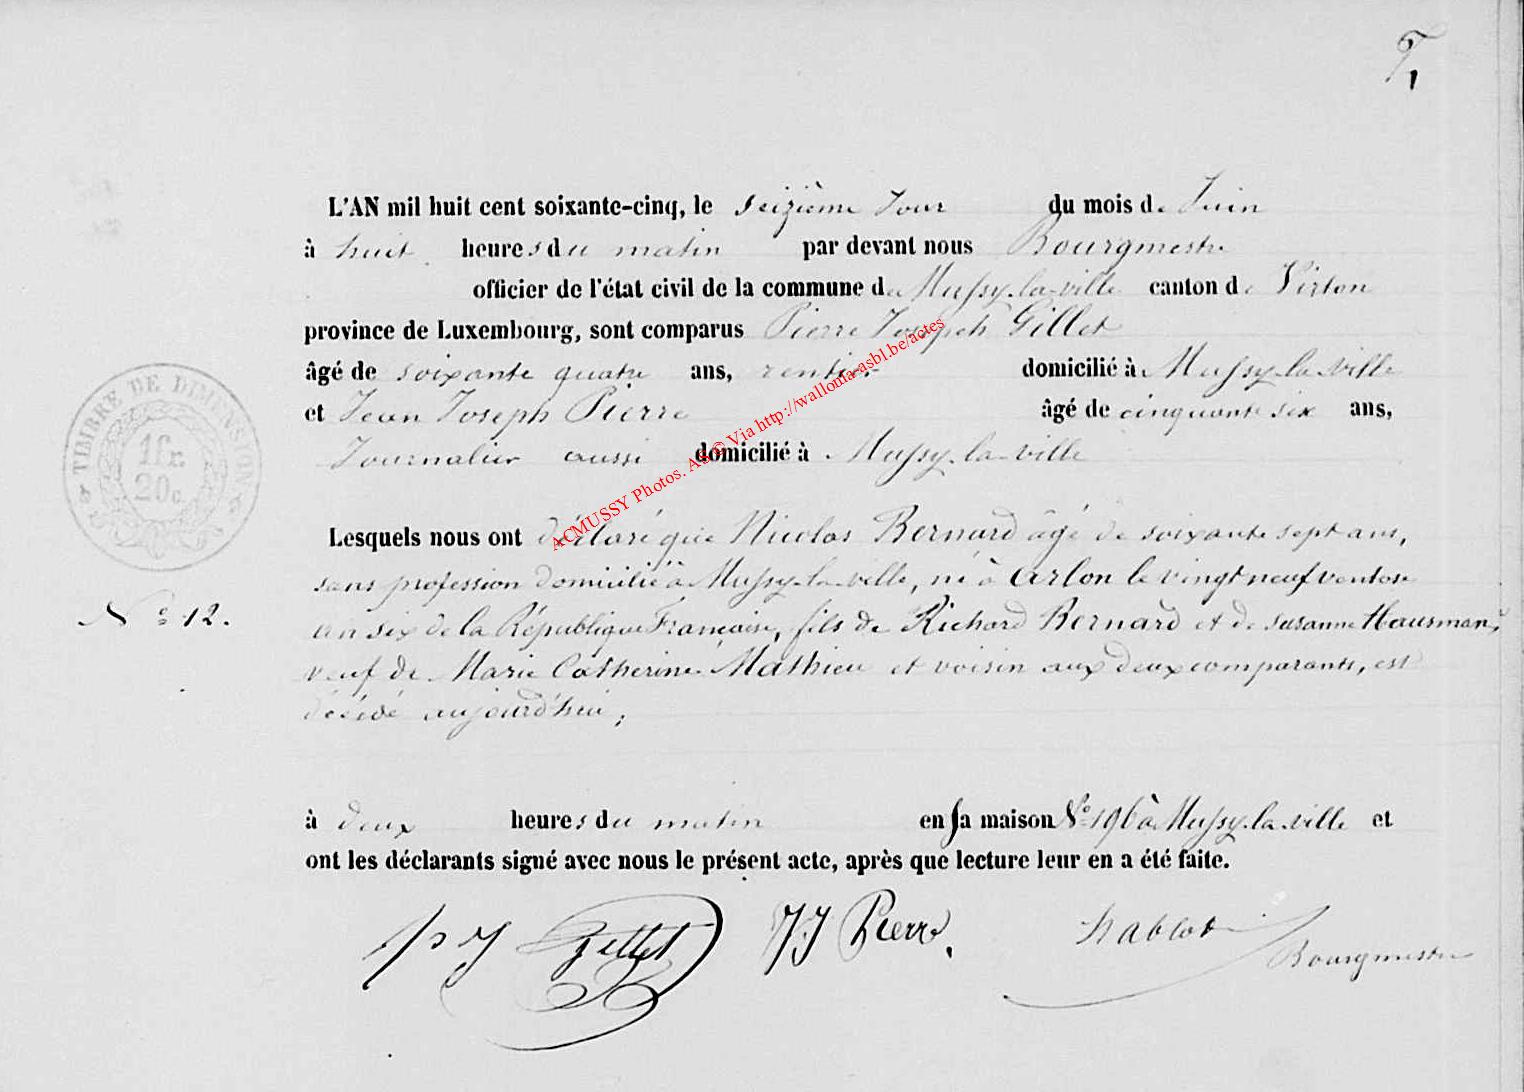 T,
L'AN mil huit cent soixante-cinq, le seizième Jour du mois de Juin
à huit heures du matin par devant nous Bourgmestre
officier de l'état civil de la commune de Mussy-la-ville canton de Virton
province de Luxembourg, sont comparus Pierre Joseph Gillet
âgé de soixante quatre ans, rentier domicilié à Mussy-la-ville
et Jean Joseph Pierre âgé de cinquante six ans,
Journalier aussi domicilié à Mussy-la-ville
TIMBRE DE DIMENSION
1 fr.
20 c.
ACMUSSY Photos. AS © Via http://wallonia-asbl.be/actes
Lesquels nous ont déclaré que Nicolas Bernard âgé de soixante sept ans,
sans profession domicilié à Mussy-la-ville, né à Arlon le vingt neuf ventose
N° 12.
an six de la République Française, fils de Richard Bernard et de Susanne Hausman,
veuf de Marie Catherine Mathieu et voisin aux deux comparants, est
décédé aujourd'hui,
à deux heures du matin en sa maison N° 196 à Mussy-la-ville et
ont les déclarants signé avec nous le présent acte, après que lecture leur en a été faite.
P J Gillet JJ Pierre. Nablot
Bourgmestre